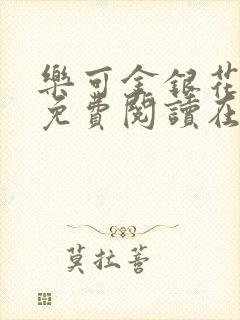 樂可金銀花
免費閱讀在
莫拉菩